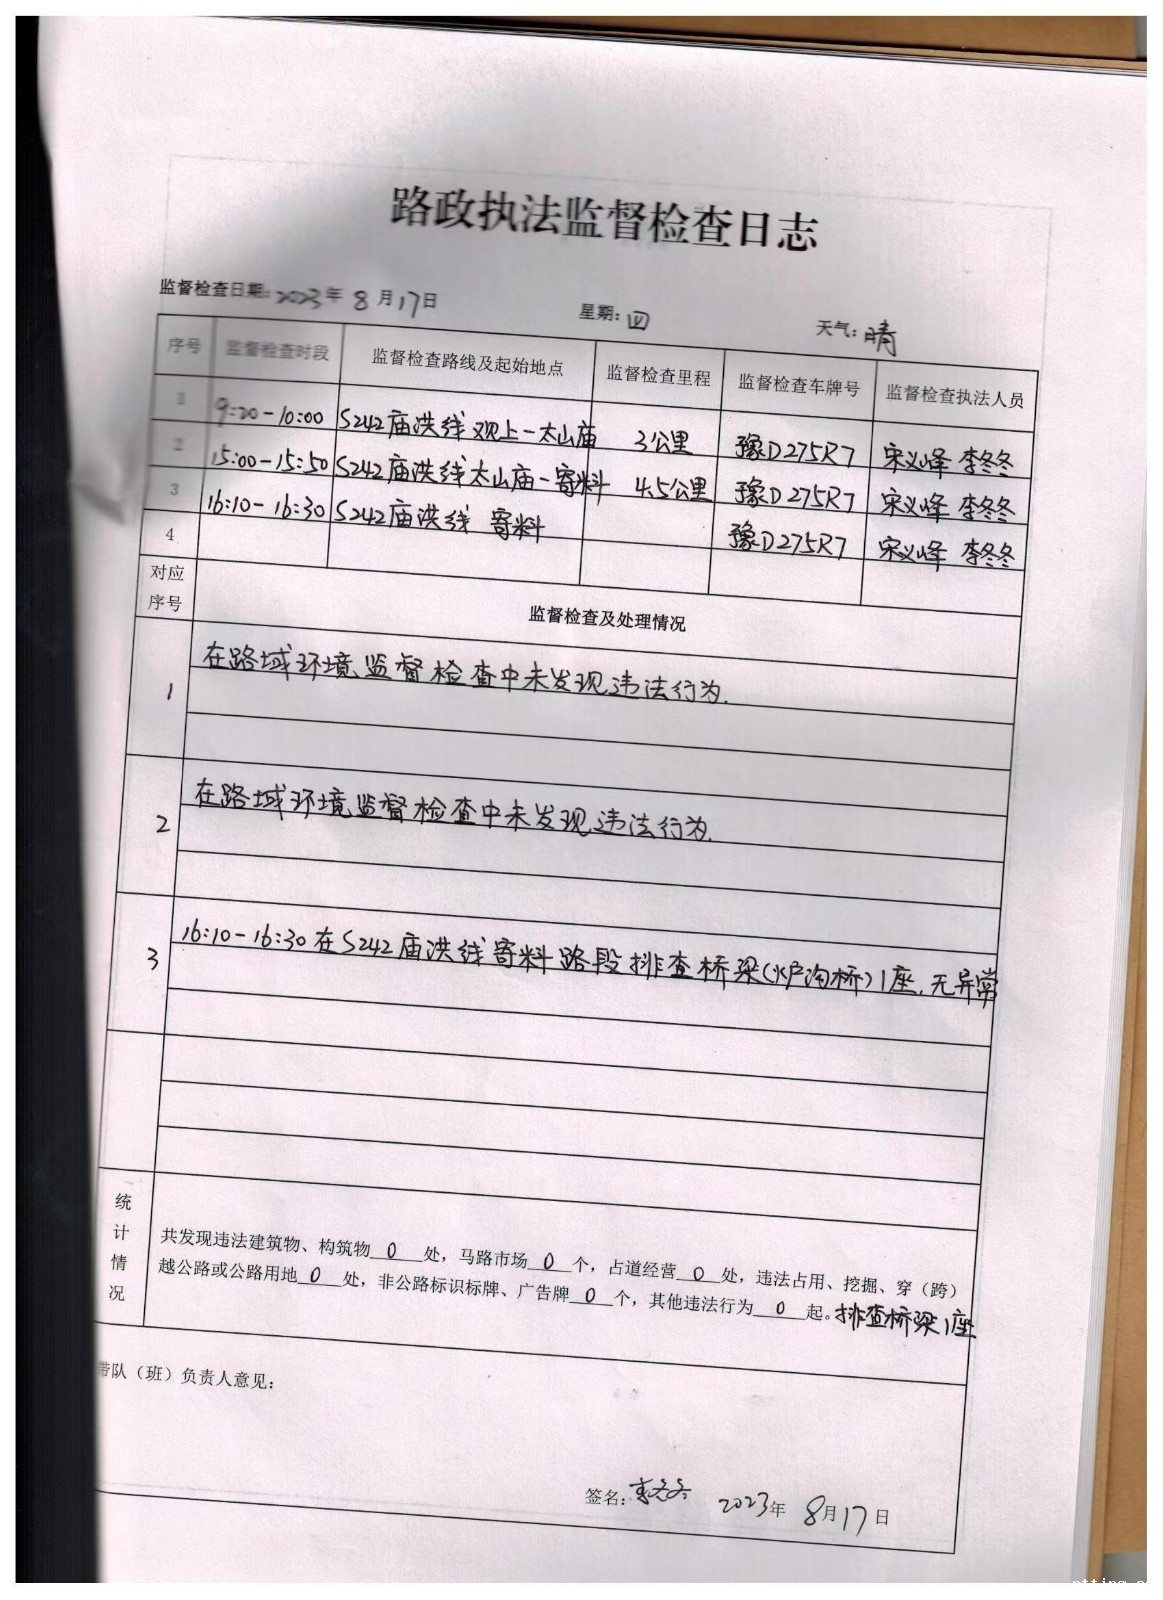 路政执法监督检查日志
监督检查日期:2023年 8月17日 星期:四 天气:晴
序号 监督检查时段 监督检查路线及起始地点 监督检查里程 监督检查车牌号 监督检查执法人员
1 9:20-10:00 S242庙洪线观上-太山庙 3公里 豫D275R7 宋义峰 李冬冬
2 15:00-15:50 S242庙洪线太山庙-寄料 4.5公里 豫D275R7 宋义峰 李冬冬
3 16:10-16:30 S242庙洪线 寄料 豫D275R7 宋义峰 李冬冬
4
对应
序号
监督检查及处理情况
1 在路域环境监督检查中未发现违法行为.
2 在路域环境监督检查中未发现违法行为.
3 16:10-16:30在S242庙洪线寄料路段排查桥梁(火户沟桥)1座,无异常
统
计
情
况
共发现违法建筑物、构筑物 0 处，马路市场 0 个，占道经营 0 处，违法占用、挖掘、穿（跨）
越公路或公路用地 0 处，非公路标识标牌、广告牌 0 个，其他违法行为 0 起。排查桥梁1座
带队（班）负责人意见：
签名:李冬冬 2023年 8月17日